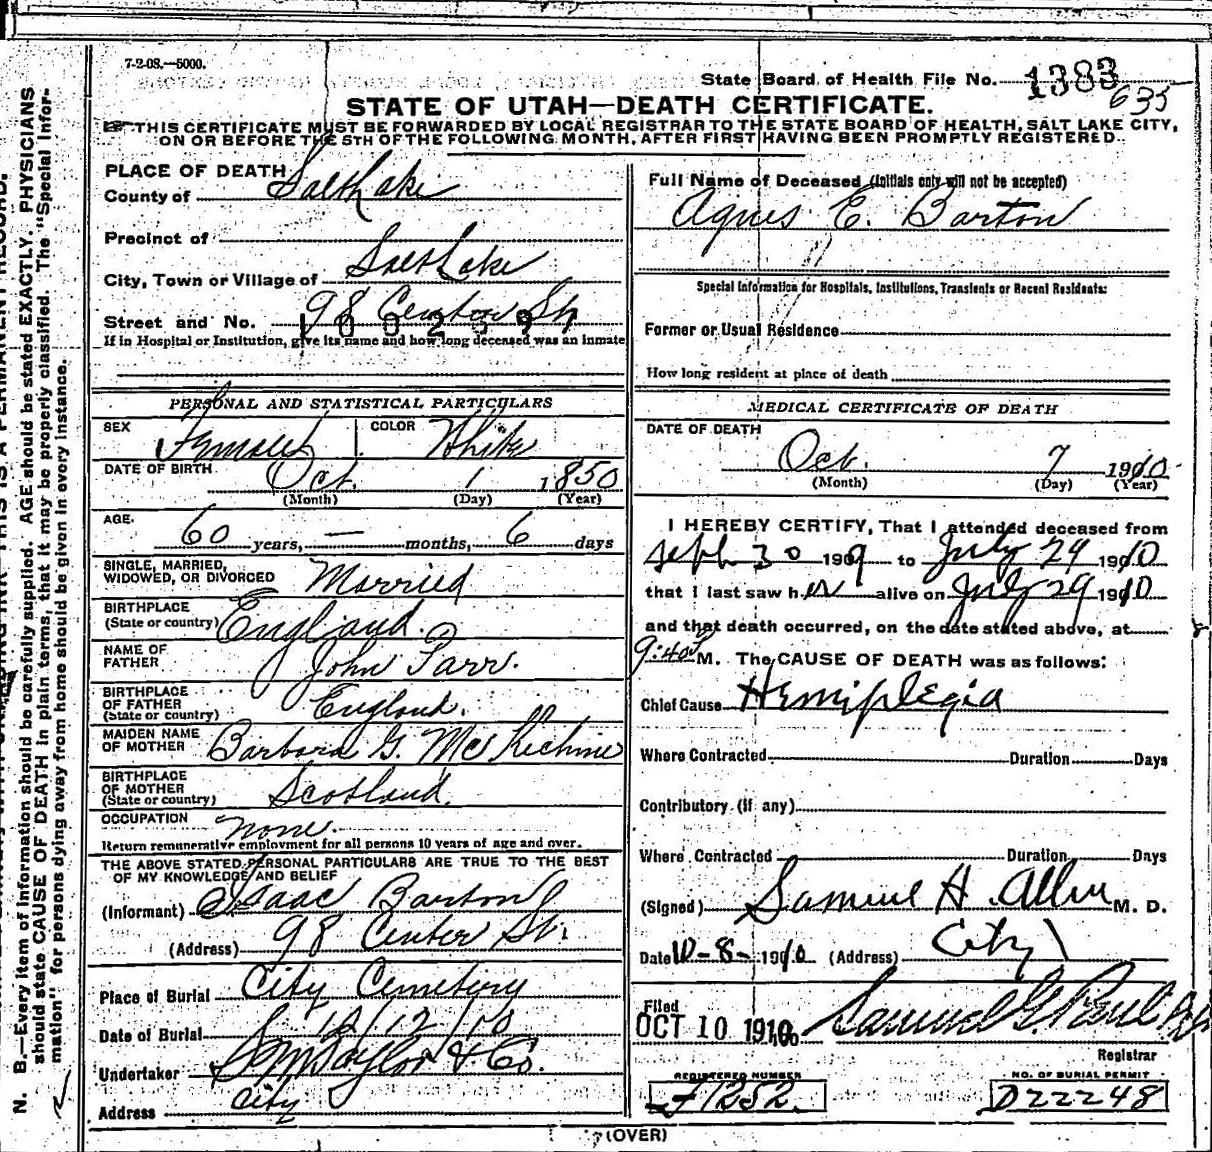 7-2-08.—5000.
State Board of Health File No. 1383
635
STATE OF UTAH—DEATH CERTIFICATE.
THIS CERTIFICATE MUST BE FORWARDED BY LOCAL REGISTRAR TO THE STATE BOARD OF HEALTH, SALT LAKE CITY,
ON OR BEFORE THE 5TH OF THE FOLLOWING MONTH, AFTER FIRST HAVING BEEN PROMPTLY REGISTERED.
PLACE OF DEATH
County of Salt Lake
Precinct of
City, Town or Village of Salt Lake
Street and No. 98 Center St
If in Hospital or Institution, give its name and how long deceased was an inmate
PERSONAL AND STATISTICAL PARTICULARS
SEX Female COLOR White
DATE OF BIRTH Oct. 1 1850
(Month) (Day) (Year)
AGE. 60 years, — months, 6 days
SINGLE, MARRIED,
WIDOWED, OR DIVORCED Married
BIRTHPLACE
(State or country) England.
NAME OF
FATHER John Farr.
BIRTHPLACE
OF FATHER
(State or country) England.
MAIDEN NAME
OF MOTHER Barbara G.
BIRTHPLACE
OF MOTHER
(State or country) Scotland.
OCCUPATION none.
Return remunerative employment for all persons 10 years of age and over.
THE ABOVE STATED PERSONAL PARTICULARS ARE TRUE TO THE BEST
OF MY KNOWLEDGE AND BELIEF
(Informant) Isaac Barton
(Address) 98 Center St.
Place of Burial City Cemetery
Date of Burial 10/12/10
Undertaker S M Taylor & Co.
Address City
Full Name of Deceased (Initials only will not be accepted)
Agnes E. Barton
Special Information for Hospitals, Institutions, Transients or Recent Residents:
Former or Usual Residence
How long resident at place of death
MEDICAL CERTIFICATE OF DEATH
DATE OF DEATH
Oct. 7 1910
(Month) (Day) (Year)
I HEREBY CERTIFY, That I attended deceased from
Sept 30 1909 to July 29 1910
that I last saw her alive on July 29 1910
and that death occurred, on the date stated above, at
9:40 P M. The CAUSE OF DEATH was as follows:
Chief Cause Hemiplegia
Where Contracted Duration Days
Contributory (if any)
Where Contracted Duration Days
(Signed) Samuel H. Allen M. D.
Date 10-8- 1910 (Address) City
Filed
OCT 10 1910 Samuel G. Paul
Registrar
REGISTERED NUMBER
1252.
NO. OF BURIAL PERMIT
D22248
(OVER)
N. B.—Every item of information should be carefully supplied. AGE should be stated EXACTLY. PHYSICIANS
should state CAUSE OF DEATH in plain terms, that it may be properly classified. The "Special Infor-
mation" for persons dying away from home should be given in every instance.